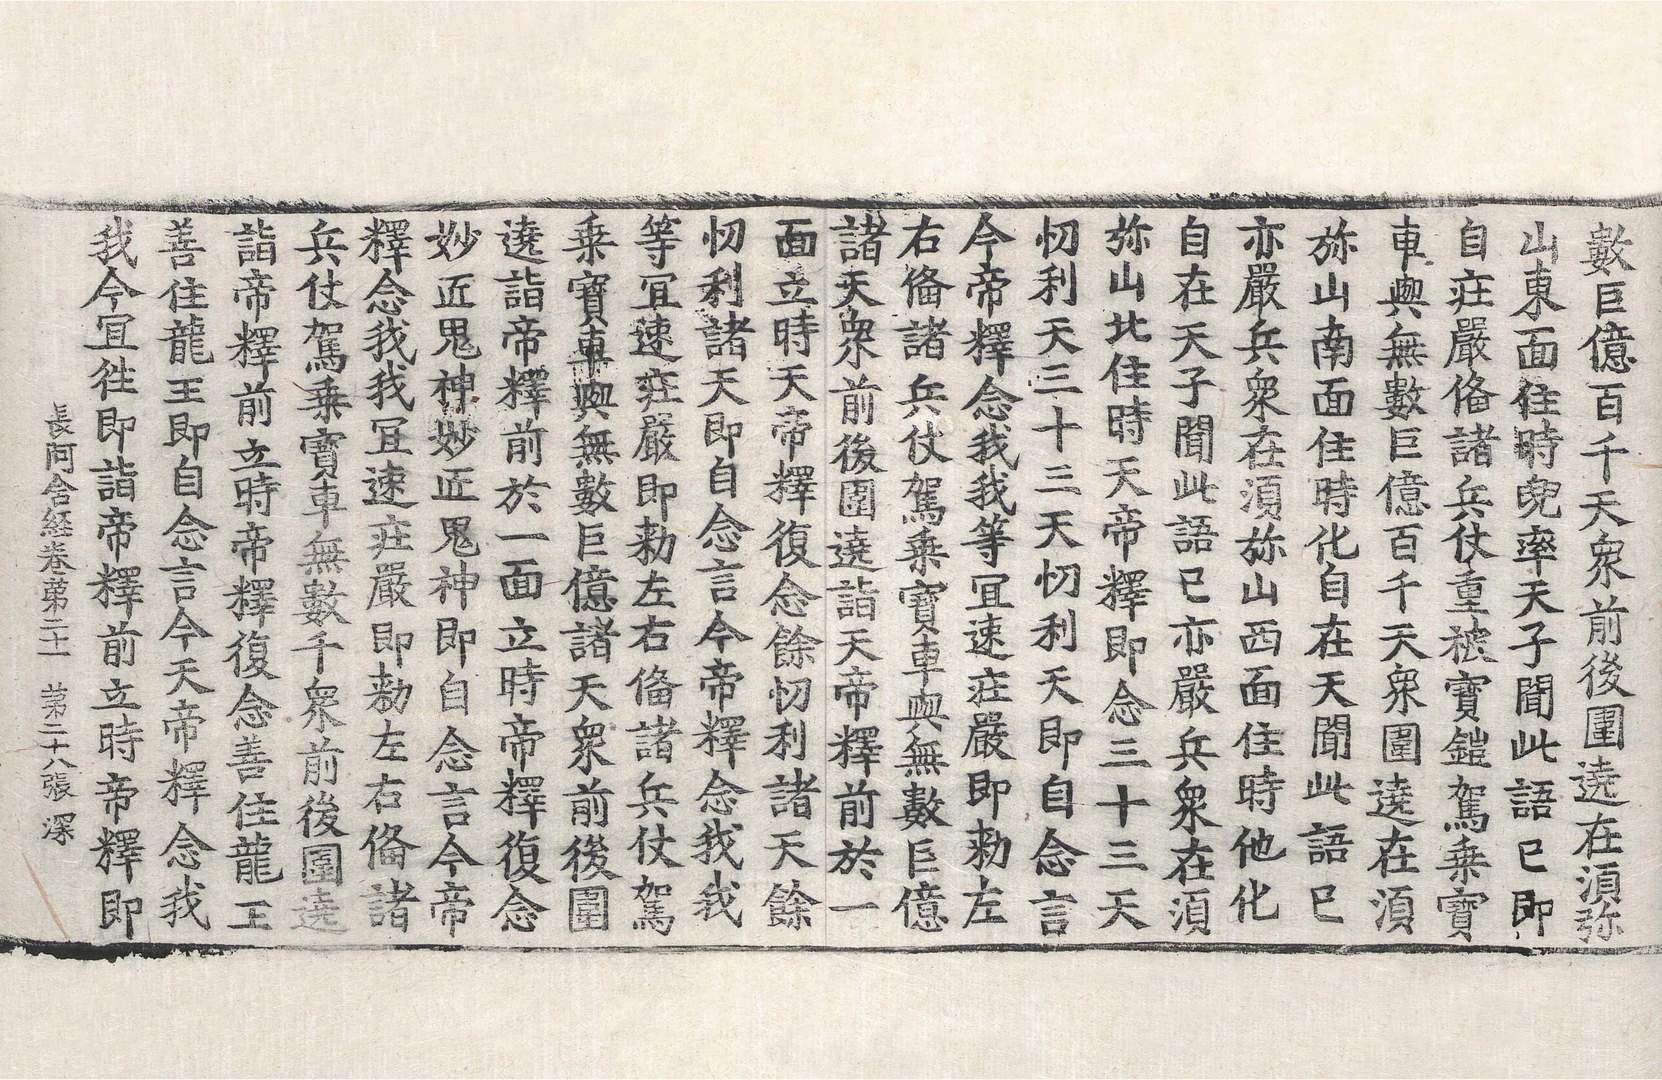 數巨億百千天衆前後圍遶在湏弥
山東面住時兜率天子聞此語已即
自莊嚴俻諸兵仗重被寶鎧駕乗寶
車輿無數巨億百千天衆圍遶在湏
弥山南面住時化自在天聞此語已
亦嚴兵衆在湏弥山西面住時他化
自在天子聞此語已亦嚴兵衆在湏
弥山北住時天帝釋即念三十三天
忉利天三十三天忉利天即自念言
今帝釋念我我等冝速莊嚴即勑左
右俻諸兵仗駕乗寶車輿無數巨億
諸天衆前後圍遶詣天帝釋前於一
面立時天帝釋復念餘忉利諸天餘
忉利諸天即自念言今帝釋念我我
等冝速莊嚴即勑左右俻諸兵仗駕
乗寶車輿無數巨億諸天衆前後圍
遶詣帝釋前於一面立時帝釋復念
妙匠鬼神妙匠鬼神即自念言今帝
釋念我我冝速莊嚴即勑左右俻諸
兵仗駕乗寶車無數千衆前後圍遶
詣帝釋前立時帝釋復念善住龍王
善住龍王即自念言今天帝釋念我
我今冝徃即詣帝釋前立時帝釋即
長阿含経卷苐二十一 苐二十八張 深